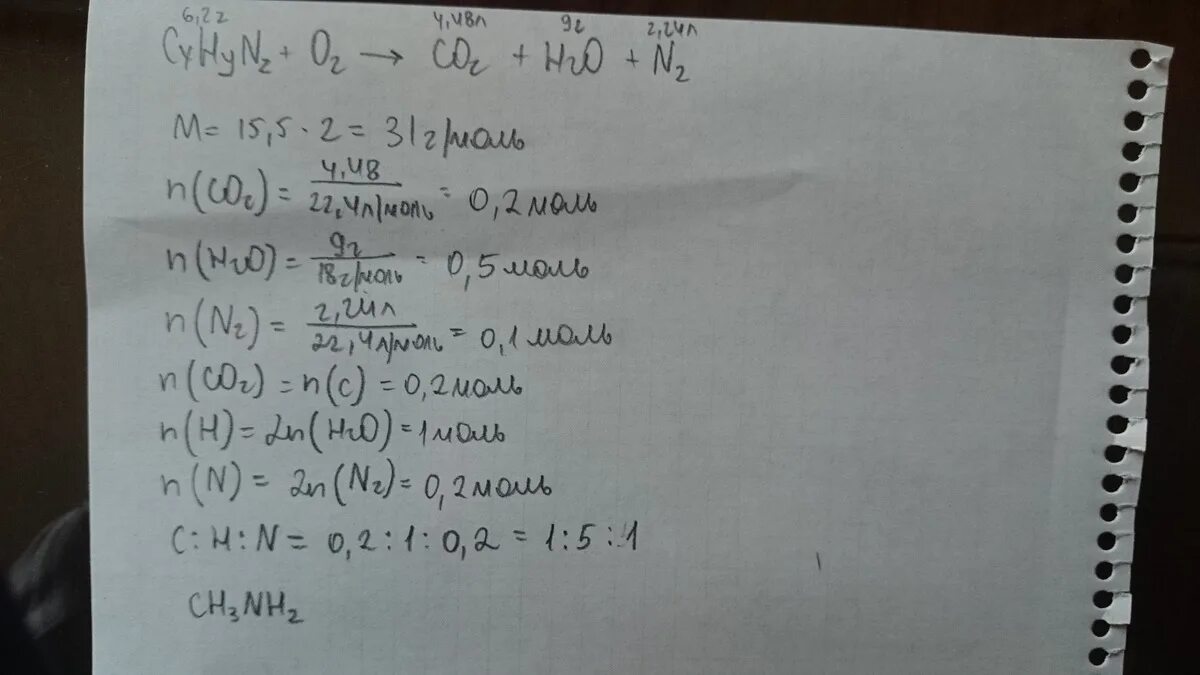 6,2г 4,48л 9г 2,24л
CxHyNz + O2 → CO2 + H2O + N2
M = 15,5 · 2 = 31 г/моль
n(CO2) = 4,48 / 22,4 л/моль = 0,2 моль
n(H2O) = 9г / 18 г/моль = 0,5 моль
n(N2) = 2,24л / 22,4 л/моль = 0,1 моль
n(CO2) = n(C) = 0,2 моль
n(H) = 2n(H2O) = 1 моль
n(N) = 2n(N2) = 0,2 моль
C:H:N = 0,2 : 1 : 0,2 = 1 : 5 : 1
CH3NH2